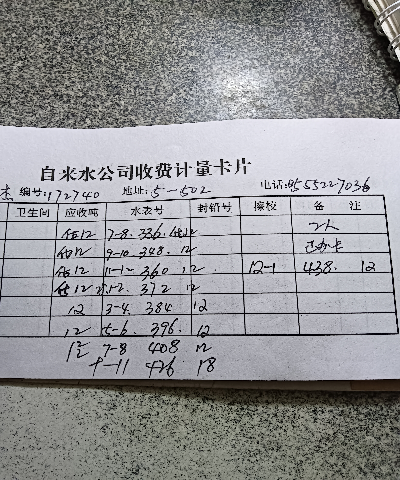 自来水公司收费计量卡片
杰 编号:172740 地址:5-502 电话:8555227036
卫生间 应收吨 水表号 封铅号 接校 备 注
估12 7-8. 336. 估12 2人
估12 9-10. 348. 12 已办卡
估12 11-12 360 12. 12-1 438. 12
估12 1-2. 372 12
12 3-4. 384 12
12 5-6. 396. 12
12 7-8 408. 12
+-11 426 18